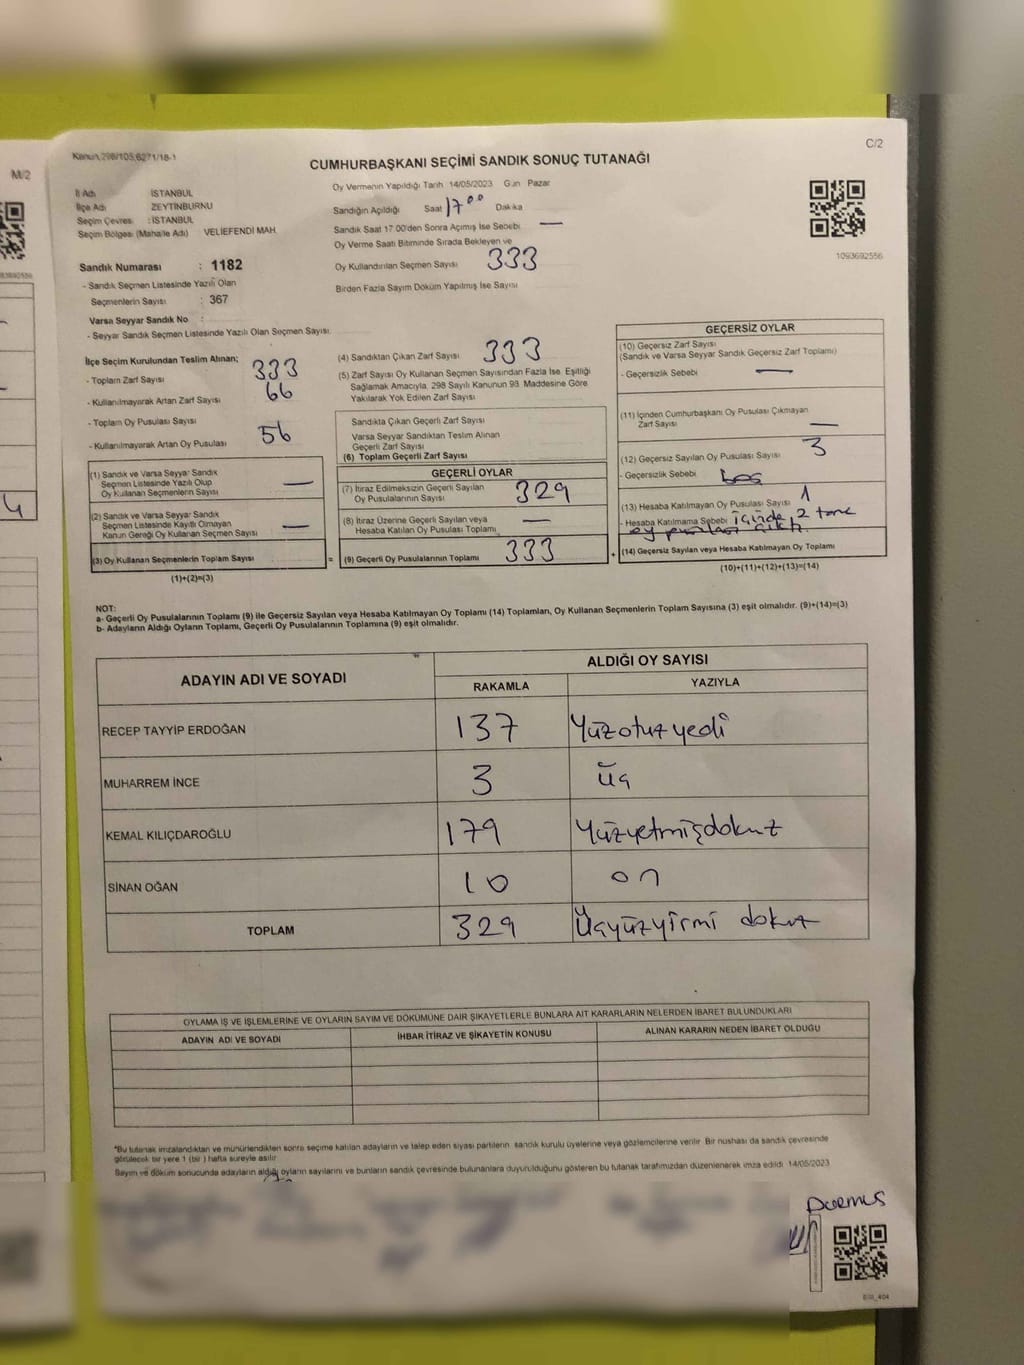 M/2
C/2
Kanun,298/105,6271/18-1
CUMHURBAŞKANI SEÇİMİ SANDIK SONUÇ TUTANAĞI
İl Adı İSTANBUL
İlçe Adı ZEYTİNBURNU
Seçim Çevres : İSTANBUL
Seçim Bölgesi (Mahalle Adı) VELİEFENDİ MAH.
Oy Vermenin Yapıldığı Tarih 14/05/2023 Gün Pazar
Sandığın Açıldığı Saat 17 00 Dakika
Sandık Saat 17.00'den Sonra Açımış İse Sebebi —
Oy Verme Saati Bitiminde Sırada Bekleyen ve
Oy Kullandırılan Seçmen Sayısı 333
Birden Fazla Sayım Döküm Yapılmış İse Sayısı
1093692556
Sandık Numarası : 1182
- Sandık Seçmen Listesinde Yazılı Olan
Seçmenlerin Sayısı : 367
Varsa Seyyar Sandık No :
- Seyyar Sandık Seçmen Listesinde Yazılı Olan Seçmen Sayısı
İlçe Seçim Kurulundan Teslim Alınan;
- Toplam Zarf Sayısı 333
- Kullanılmayarak Artan Zarf Sayısı 66
- Toplam Oy Pusulası Sayısı
- Kullanılmayarak Artan Oy Pusulası 56
(1) Sandık ve Varsa Seyyar Sandık
Seçmen Listesinde Yazılı Olup
Oy Kullanan Seçmenlerin Sayısı —
(2) Sandık ve Varsa Seyyar Sandık
Seçmen Listesinde Kayıtlı Olmayan
Kanun Gereği Oy Kullanan Seçmen Sayısı —
(3) Oy Kullanan Seçmenlerin Toplam Sayısı
(1)+(2)=(3)
(4) Sandıktan Çıkan Zarf Sayısı 333
(5) Zarf Sayısı Oy Kullanan Seçmen Sayısından Fazla İse, Eşitliği
Sağlamak Amacıyla, 298 Sayılı Kanunun 98. Maddesine Göre
Yakılarak Yok Edilen Zarf Sayısı
Sandıkta Çıkan Geçerli Zarf Sayısı
Varsa Seyyar Sandıktan Teslim Alınan
Geçerli Zarf Sayısı
(6) Toplam Geçerli Zarf Sayısı
GEÇERLİ OYLAR
(7) İtiraz Edilmeksizin Geçerli Sayılan
Oy Pusulalarının Sayısı 329
(8) İtiraz Üzerine Geçerli Sayılan veya
Hesaba Katılan Oy Pusulası Toplamı —
= (9) Geçerli Oy Pusulalarının Toplamı 333 +
GEÇERSİZ OYLAR
(10) Geçersiz Zarf Sayısı
(Sandık ve Varsa Seyyar Sandık Geçersiz Zarf Toplamı)
- Geçersizlik Sebebi —
(11) İçinden Cumhurbaşkanı Oy Pusulası Çıkmayan
Zarf Sayısı —
(12) Geçersiz Sayılan Oy Pusulası Sayısı 3
- Geçersizlik Sebebi boş
(13) Hesaba Katılmayan Oy Pusulası Sayısı 1
- Hesaba Katılmama Sebebi içinde 2 tane
oy pusulası çıktı.
(14) Geçersiz Sayılan veya Hesaba Katılmayan Oy Toplamı
(10)+(11)+(12)+(13)=(14)
NOT:
a- Geçerli Oy Pusulalarının Toplamı (9) ile Geçersiz Sayılan veya Hesaba Katılmayan Oy Toplamı (14) Toplamları, Oy Kullanan Seçmenlerin Toplam Sayısına (3) eşit olmalıdır. (9)+(14)=(3)
b- Adayların Aldığı Oyların Toplamı, Geçerli Oy Pusulalarının Toplamına (9) eşit olmalıdır.
ADAYIN ADI VE SOYADI
ALDIĞI OY SAYISI
RAKAMLA YAZIYLA
RECEP TAYYİP ERDOĞAN 137 Yüzotuzyedi
MUHARREM İNCE 3 üç
KEMAL KILIÇDAROĞLU 179 Yüzyetmişdokuz
SİNAN OĞAN 10 on
TOPLAM 329 Üçyüzyirmi dokuz
OYLAMA İŞ VE İŞLEMLERİNE VE OYLARIN SAYIM VE DÖKÜMÜNE DAİR ŞİKAYETLERLE BUNLARA AİT KARARLARIN NELERDEN İBARET BULUNDUKLARI
ADAYIN ADI VE SOYADI İHBAR İTİRAZ VE ŞİKAYETİN KONUSU ALINAN KARARIN NEDEN İBARET OLDUĞU
*Bu tutanak imzalandıktan ve mühürlendikten sonra seçime katılan adayların ve talep eden siyasi partilerin sandık kurulu üyelerine veya gözlemcilerine verilir. Bir nushası da sandık çevresinde
görülecek bir yere 1 (bir ) hafta süreyle asılır
Sayım ve döküm sonucunda adayların aldığı oyların sayılarını ve bunların sandık çevresinde bulunanlara duyurulduğunu gösteren bu tutanak tarafımızdan düzenlenerek imza edildi 14/05/2023